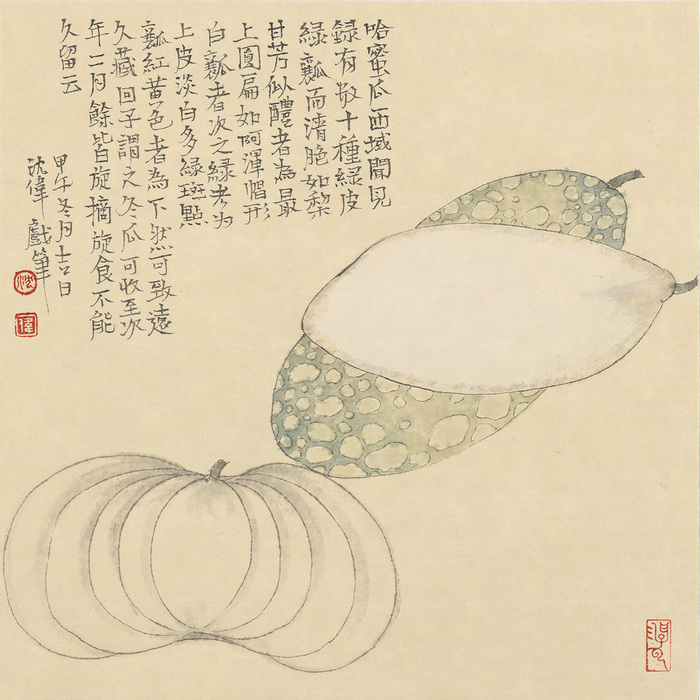 哈蜜瓜西域聞見
録有数十種綠皮
綠瓤而清脆如梨
甘芳似醴者為最
上圓扁如阿渾帽形
白瓤者次之綠者為
上皮淡白多綠斑點
瓤紅黃色者為下然可致遠
久藏回子謂之冬瓜可收至次
年二月餘皆旋摘旋食不能
久留云
甲午冬月十六日
沈偉戲筆
沈
偉